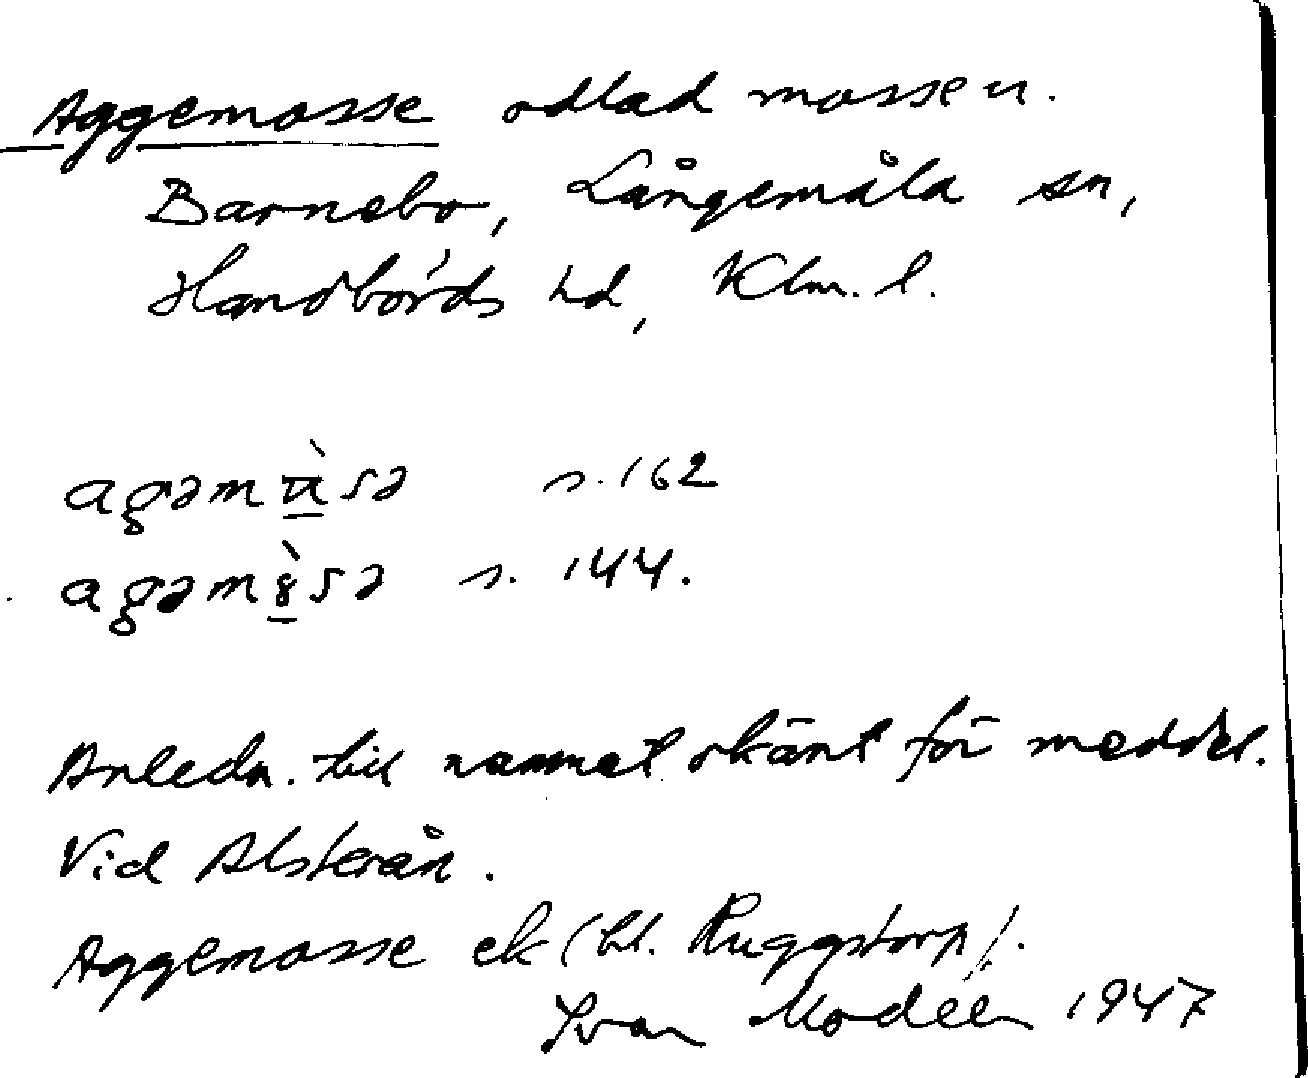 Aggemosse odlad mosse u.
Barnebo, Långemåla sn,
Handbörds hd, Klm. l.
s. 162
s. 144.
Anledn. till namnet okänt för meddel.
Vid Alsterån.
Aggemosse ek (bl. Ruggstorp).
Ivar Modéer 1947